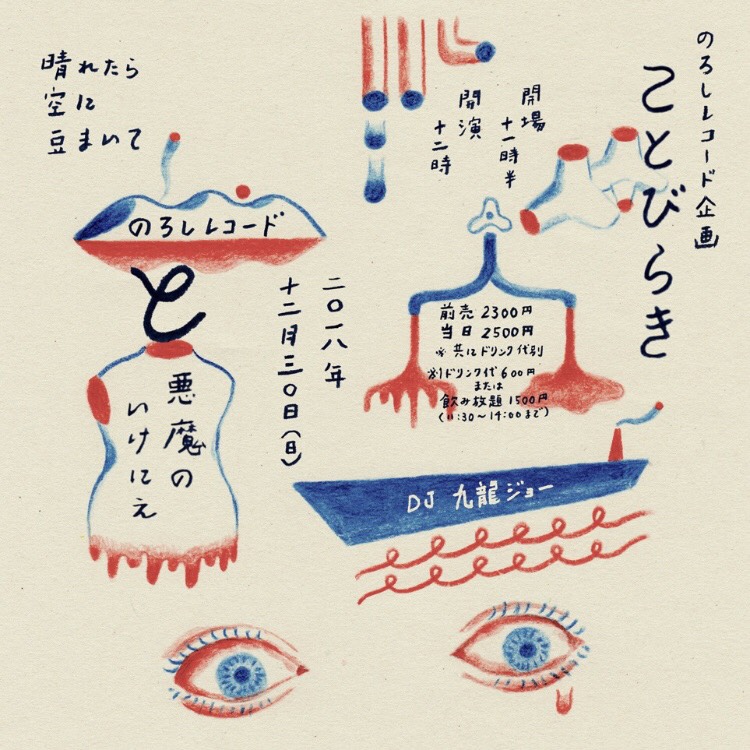 のろしレコード企画
ことびらき
開場
十一時半
開演
十二時
晴れたら
空に
豆まいて
のろしレコード
と
悪魔の
いけにえ
二〇一八年
十二月三〇日(日)
前売 2300円
当日 2500円
※共にドリンク代別
※1ドリンク代600円
または
飲み放題 1500円
(11:30〜14:00まで)
DJ 九龍ジョー